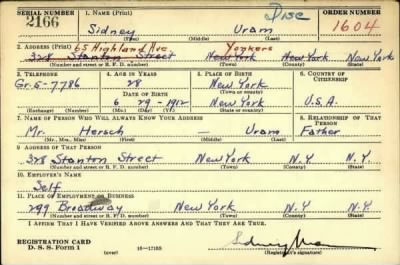 SERIAL NUMBER 1. NAME (Print) Disc ORDER NUMBER
2166 Sidney Uram 1604
(First) (Middle) (Last)
2. ADDRESS (Print) 65 Highland Ave. Yonkers
328 Stanton Street New York New York New York
(Number and street or R. F. D. number) (Town) (County) (State)
3. TELEPHONE 4. AGE IN YEARS 5. PLACE OF BIRTH 6. COUNTRY OF CITIZENSHIP
Gr. 5-7786 28 New York
DATE OF BIRTH (Town or county)
6 29 - 1912 New York U.S.A.
(Exchange) (Number) (Mo.) (Day) (Yr.) (State or country)
7. NAME OF PERSON WHO WILL ALWAYS KNOW YOUR ADDRESS 8. RELATIONSHIP OF THAT PERSON
Mr. Hersch — Uram Father
(Mr., Mrs., Miss) (First) (Middle) (Last)
9. ADDRESS OF THAT PERSON
328 Stanton Street New York N.Y. N.Y.
(Number and street or R. F. D. number) (Town) (County) (State)
10. EMPLOYER'S NAME
Self
11. PLACE OF EMPLOYMENT OR BUSINESS
299 Broadway New York N.Y. N.Y.
(Number and street or R. F. D. number) (Town) (County) (State)
I AFFIRM THAT I HAVE VERIFIED ABOVE ANSWERS AND THAT THEY ARE TRUE.
REGISTRATION CARD
D. S. S. Form 1 (over) 16—17105 Sidney Uram
(Registrant's signature)